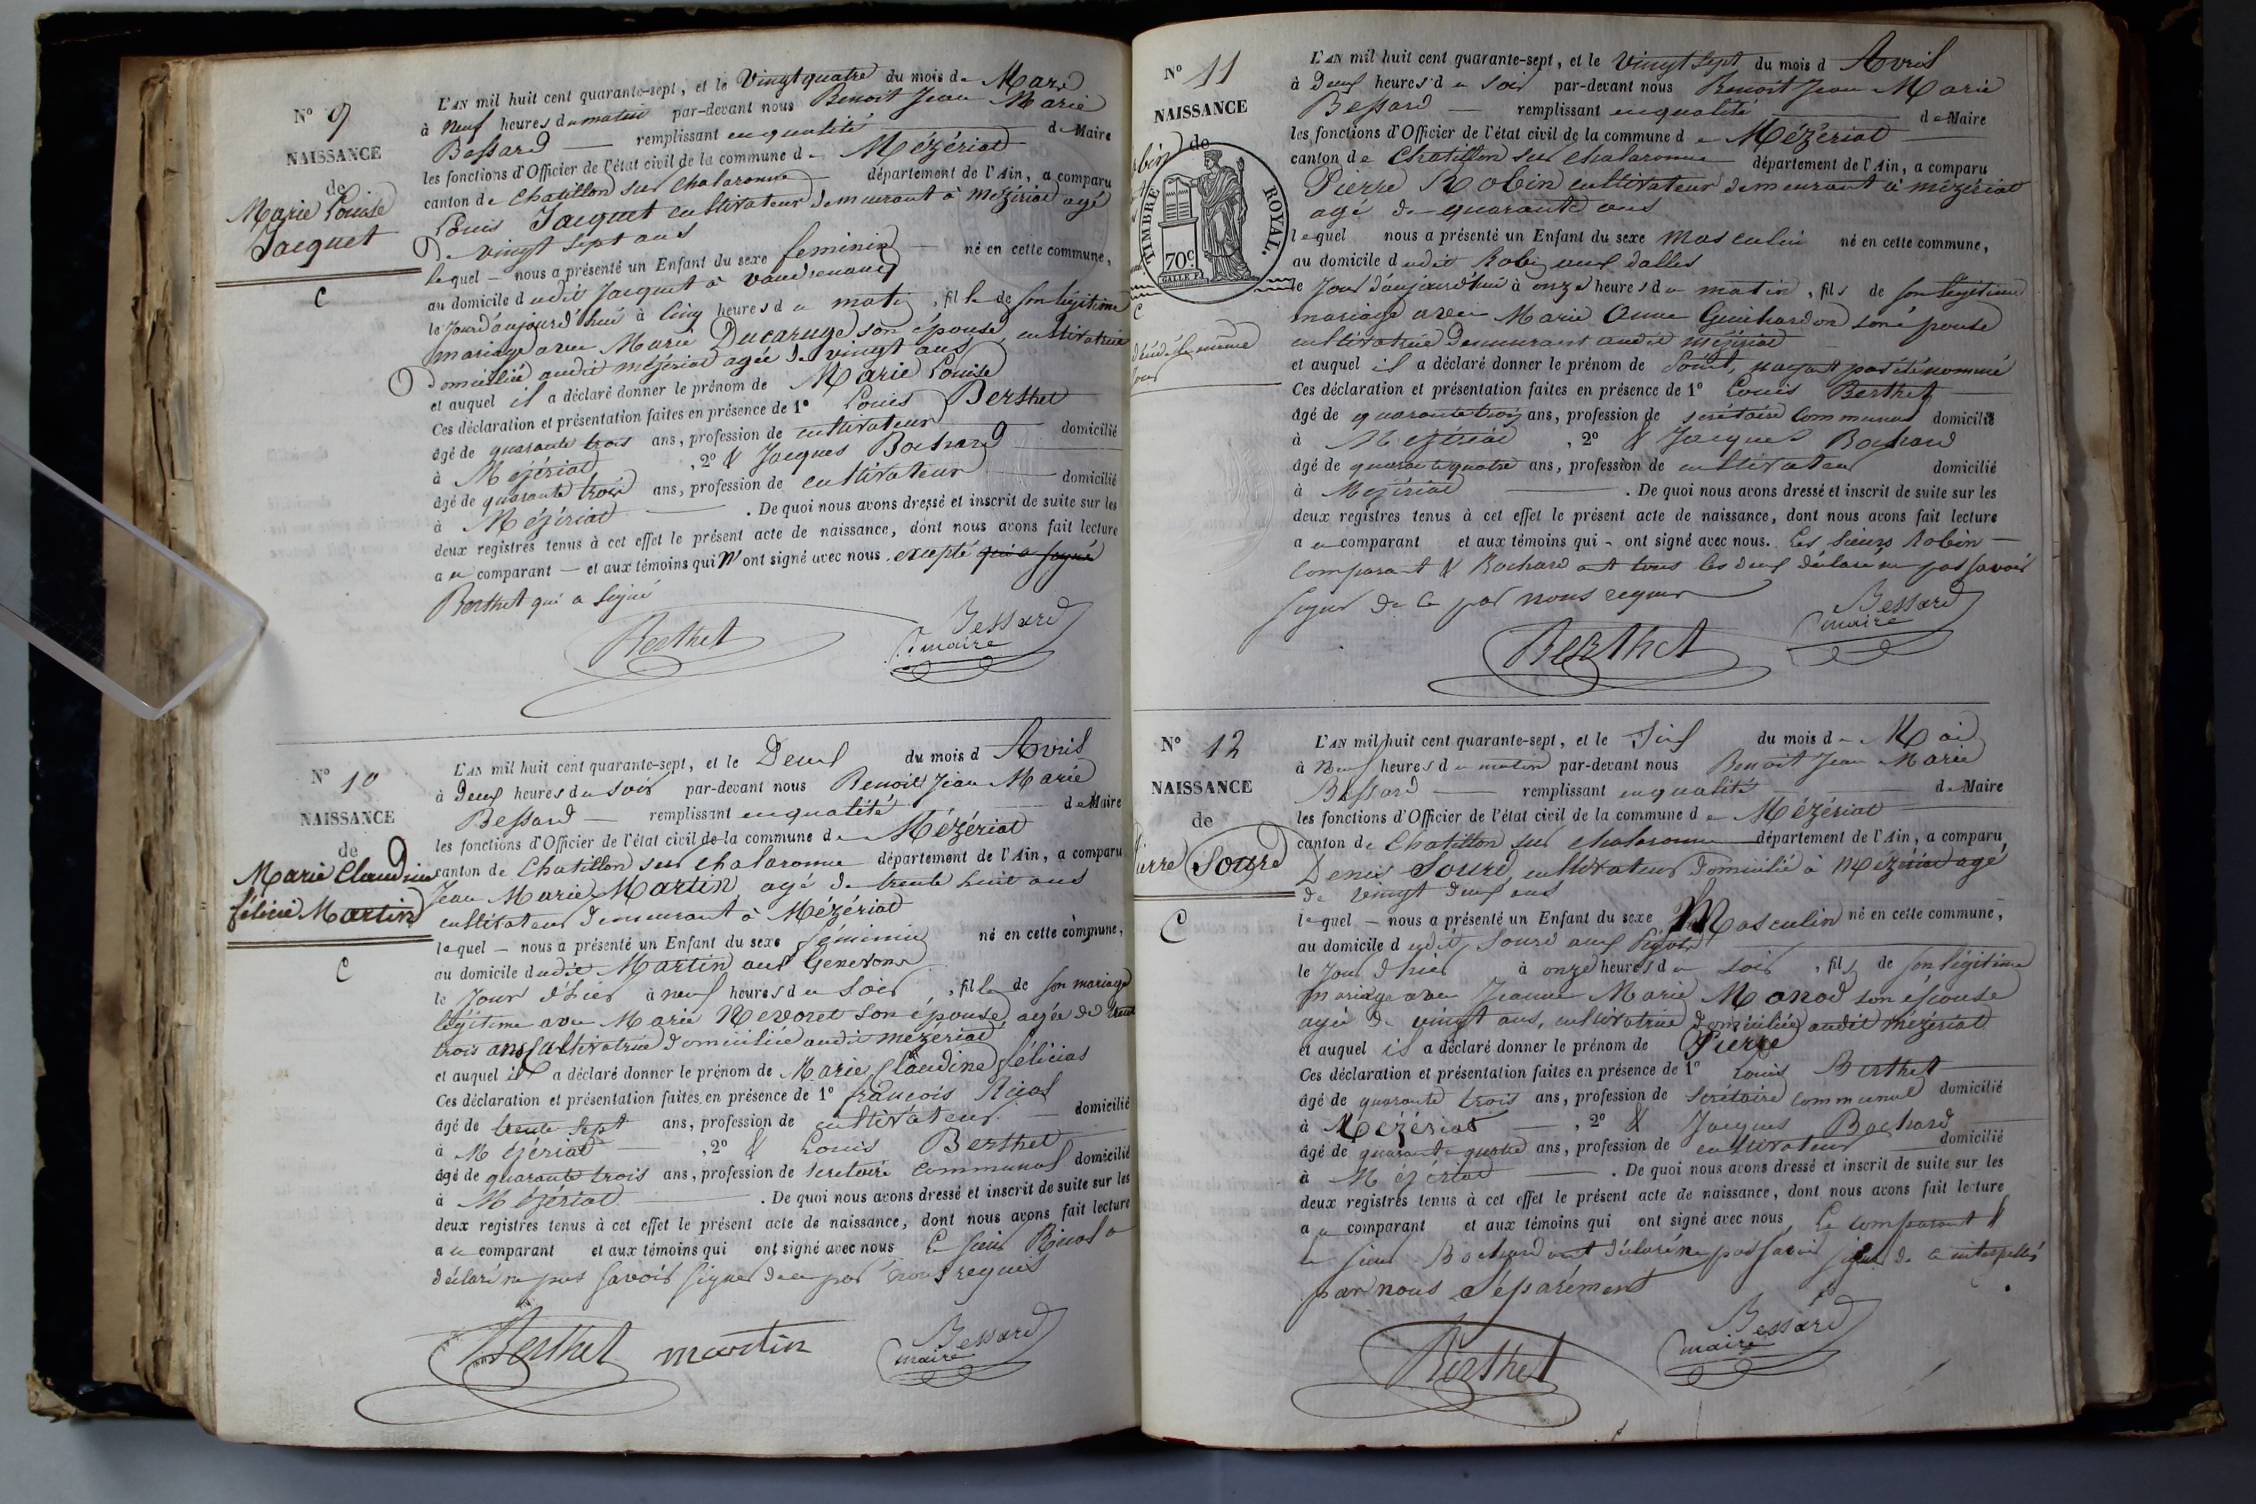 N° 9
NAISSANCE
de
Marie Louise
Jacquet
C
L'AN mil huit cent quarante-sept, et le Vingt quatre du mois de Mars
à Neuf heures du matin par-devant nous Benoit Jean Marie
Bessard — remplissant en qualité de Maire
les fonctions d'Officier de l'état civil de la commune de Mézériat
canton de Chatillon sur chalaronne département de l'Ain, a comparu
Louis Jacquet cultivateur demeurant à Mézériat agé
de vingt sept ans
lequel — nous a présenté un Enfant du sexe feminin — né en cette commune,
au domicile dudit Jacquet à
le jourd'aujourd'hui à Cinq heures du matin, fille de son légitime
mariage avec Marie Ducaruge son épouse, cultivatrice
domiciliée audit mézériat agée de vingt ans
et auquel il a déclaré donner le prénom de Marie Louise
Ces déclaration et présentation faites en présence de 1° Louis Berthet
âgé de quarante trois ans, profession de cultivateur domicilié
à Mézériat, 2° & Jacques Bochard
âgé de quarante trois ans, profession de cultivateur domicilié
à Mézériat — . De quoi nous avons dressé et inscrit de suite sur les
deux registres tenus à cet effet le présent acte de naissance, dont nous avons fait lecture
au comparant — et aux témoins qui N'ont signé avec nous. excepté qui a signé
Berthet qui a signé
Berthet Bessard
maire
N° 10
NAISSANCE
de
Marie Claudine
félicie Martin
C
L'AN mil huit cent quarante-sept, et le Deux du mois d Avril
à Deux heures du soir par-devant nous Benoit Jean Marie
Bessard — remplissant en qualité de Maire
les fonctions d'Officier de l'état civil de la commune de Mézériat
canton de Chatillon sur chalaronne département de l'Ain, a comparu
Jean Marie Martin agé de trente huit ans
cultivateur demeurant à Mézériat
lequel — nous a présenté un Enfant du sexe féminin né en cette commune,
au domicile dudit Martin aux Genevons
le Jour d'hier à neuf heures du soir, fille de son mariage
légitime avec Marie Nevoret son épouse agée de trente
trois ans Cultivatrice domiciliée audit mézériat
et auquel il a déclaré donner le prénom de Marie Claudine félicie
Ces déclaration et présentation faites en présence de 1° françois
âgé de trente sept ans, profession de cultivateur — domicilié
à Mézériat — , 2° & Louis Berthet
âgé de quarante trois ans, profession de secretaire communal domicilié
à Mézériat — . De quoi nous avons dressé et inscrit de suite sur les
deux registres tenus à cet effet le présent acte de naissance, dont nous avons fait lecture
au comparant et aux témoins qui ont signé avec nous le sieur a
déclaré ne pas savoir signer de ce par nous requis
Berthet martin Bessard
maire
N° 11
NAISSANCE
de
TIMBRE ROYAL.
70c.
C
décédé le même
jour
L'AN mil huit cent quarante-sept, et le Vingt Sept du mois d Avril
à Deux heures du Soir par-devant nous Benoit Jean Marie
Bessard — remplissant en qualité de Maire
les fonctions d'Officier de l'état civil de la commune de Mézériat
canton de Chatillon sur chalaronne département de l'Ain, a comparu
Pierre Robin cultivateur demeurant à mézériat
agé de quarante ans
lequel nous a présenté un Enfant du sexe masculin né en cette commune,
au domicile dudit Robin aux dalles
le Jour d'aujourd'hui à onze heures du matin, fils de son légitime
mariage avec Marie Anne Guichardon son épouse
cultivatrice demeurant audit mézériat
et auquel il a déclaré donner le prénom de n'ayant pas été nommé
Ces déclaration et présentation faites en présence de 1° Louis Berthet
âgé de quarante trois ans, profession de secrétaire communal domicilié
à Mézériat, 2° & Jacques Bochard
âgé de quarante quatre ans, profession de cultivateur domicilié
à Mézériat — . De quoi nous avons dressé et inscrit de suite sur les
deux registres tenus à cet effet le présent acte de naissance, dont nous avons fait lecture
au comparant et aux témoins qui - ont signé avec nous. Les sieurs Robin —
comparant & Bochard ont tous les deux déclaré ne pas savoir
signer de ce par nous requis
Berthet Bessard
maire
N° 12
NAISSANCE
de
Pierre Sourd
C
L'AN mil huit cent quarante-sept, et le Six du mois de Mai
à Neuf heures du matin par-devant nous Benoit Jean Marie
Bessard — remplissant en qualité de Maire
les fonctions d'Officier de l'état civil de la commune de Mézériat
canton de Chatillon sur chalaronne département de l'Ain, a comparu,
Denis Sourd, cultivateur domicilié à Mézériat agé
de vingt deux ans
lequel — nous a présenté un Enfant du sexe Masculin né en cette commune,
au domicile dudit Sourd aux
le Jour d'hier à onze heures du soir, fils de son légitime
mariage avec Jeanne Marie Manod son épouse
agée de vingt ans, cultivatrice domiciliée audit mézériat
et auquel il a déclaré donner le prénom de Pierre
Ces déclaration et présentation faites en présence de 1° Louis Berthet
âgé de quarante trois ans, profession de secrétaire communal domicilié
à Mézériat — , 2° & Jacques Bochard
âgé de quarante quatre ans, profession de cultivateur domicilié
à Mézériat — . De quoi nous avons dressé et inscrit de suite sur les
deux registres tenus à cet effet le présent acte de naissance, dont nous avons fait lecture
au comparant et aux témoins qui ont signé avec nous, le comparant &
le sieur Bochard ont déclaré ne pas savoir signer de ce interpellés
par nous séparément
Berthet Bessard
maire